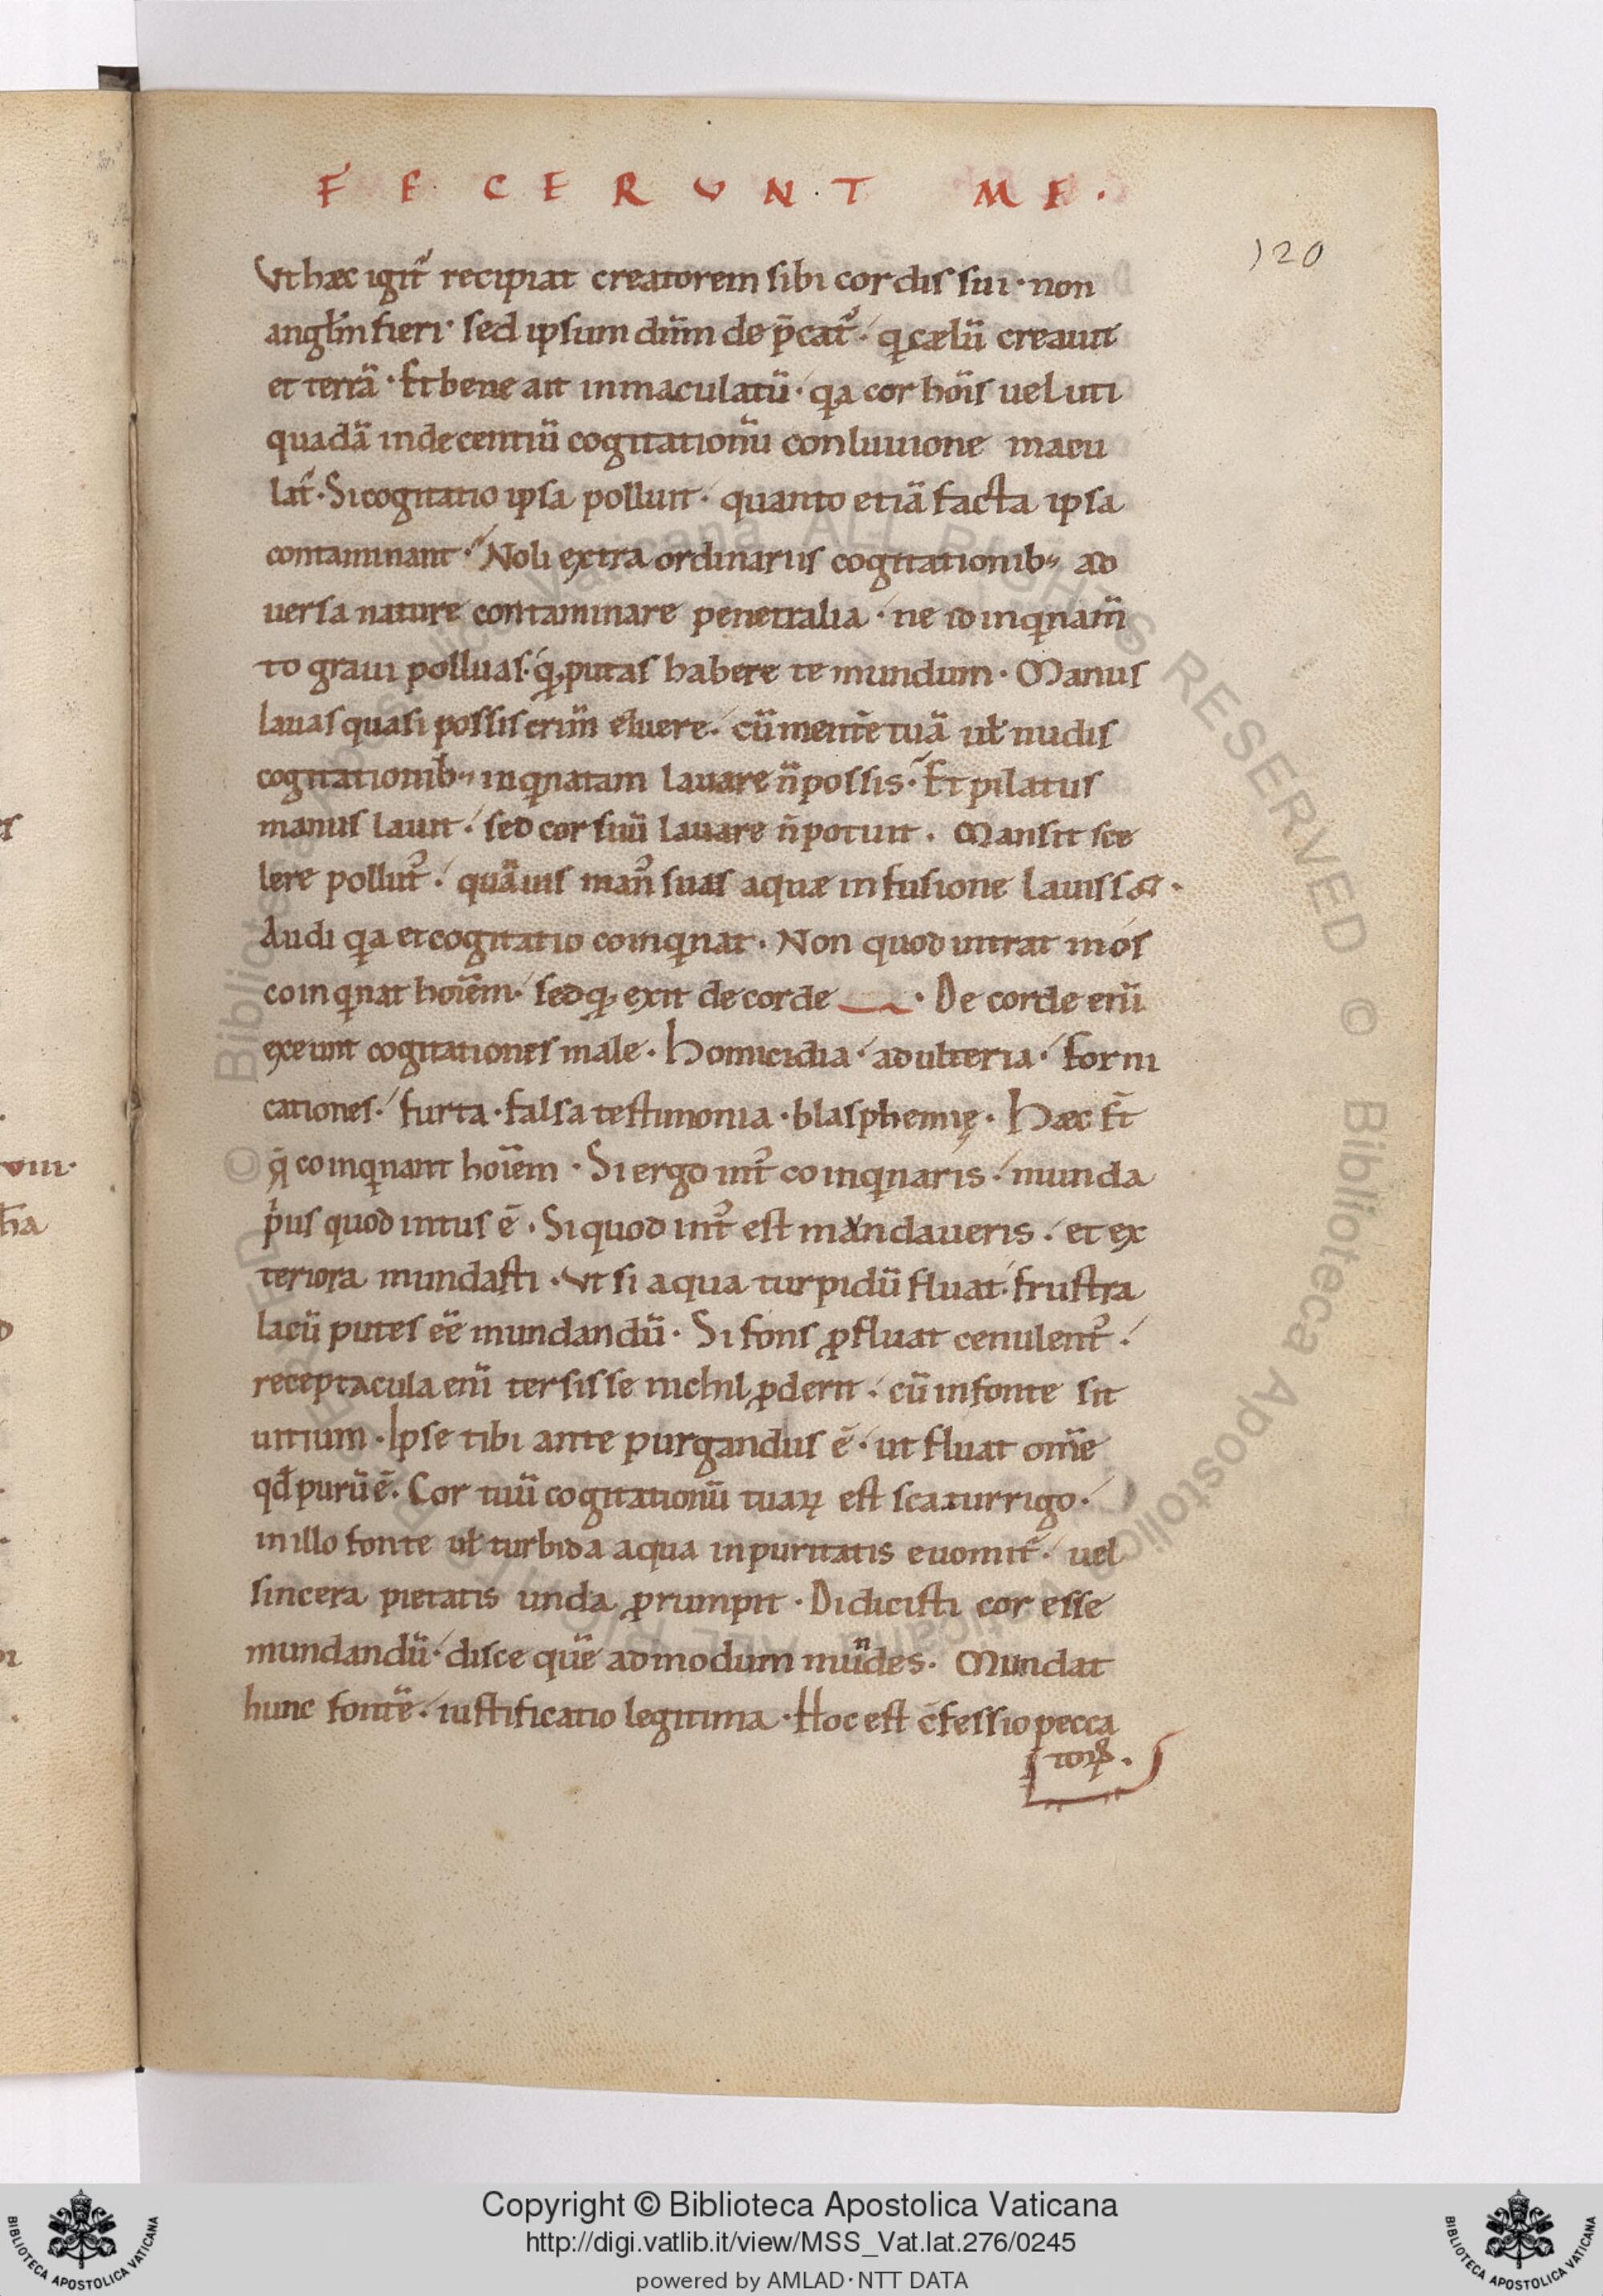 F E C E R V N T M E .
120
Vt hæc igit᷑ recipiat creatorem sibi cordis sui · non
angłm fieri · sed ipsum dūm de p̄cat᷑ · qͥ cælū creauit
et terrā · Et bene ait inmaculatū · qͥa cor hoīs uelut i
quadā indecentiū cogitationū conluuione macu
lat᷑ · Si cogitatio ipsa polluit · quanto etiā facta ipsa
contaminant · Noli extraordinariis cogitationib; ad
uersa nature contaminare penetralia · ne id inqͥnam̄
to graui polluas · qđ putas habere te mundum · Manus
lauas quasi possis crim̄ eluere · cū mentē tuā uł nudis
cogitationib; inqͥnatam lauare n̄ possis · Et pilatus
manus lauit · sed cor suū lauare n̄ potuit . Mansit sce
lere pollut᷒ · quāuis man᷒ suas aquæ infusione lauiss& ·
Audi qͥa et cogitatio coinqͥnat · Non quod intrat in ós
coinqͥnat hoīem · sed qđ exit de corde · De corde enī
exeunt cogitationes male · Homicidia · adulteria · forni
cationes · furta · falsa testimonia · blasphemię · Hæc st̄
q̄ coinqͥnant hoīem · Si ergo int᷒ coinqͥnaris · munda
pͥus quod intus ē · Si quod int᷒ est mundaueris · et ex
teriora mundasti · Vt si aqua turpidū fluat · frustra
lacū putes eē mundandū · Si fons ꝓfluat cenulent᷒ ·
receptacula enī tersisse nichil ꝓderit · cū in fonte sit
uitium · Ipse tibi ante purgandus ē · ut fluat om̄e
qđ purū ē · Cor tuū cogitationū tuaꝝ est scaturrigo ·
in illo fonte uł turbida aqua inpuritatis euomit᷑ · uel
sincera pietatis unda ꝓrumpit · Didicisti cor esse
mundandū · disce quē admodum mūndes · Mundat
hunc fontē · iustificatio legitima · Hoc est c̄fessio pecca
toꝝ .
Copyright © Biblioteca Apostolica Vaticana
http://digi.vatlib.it/view/MSS_Vat.lat.276/0245
powered by AMLAD·NTT DATA